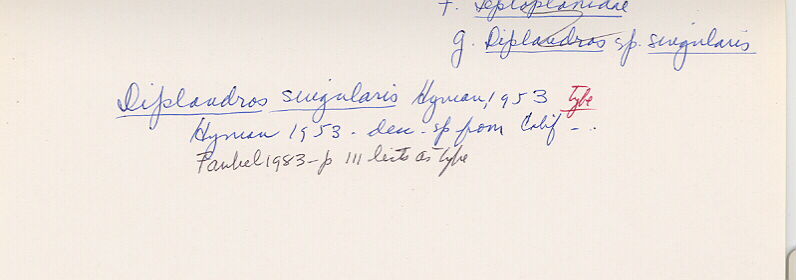 F. Leptoplanidae
g. Diplandros sp. singularis
Diplandros singularis Hyman, 1953 Type
Hyman 1953 - desc. sp from Calif - ..
Faubel 1983 - p 111 lists as type